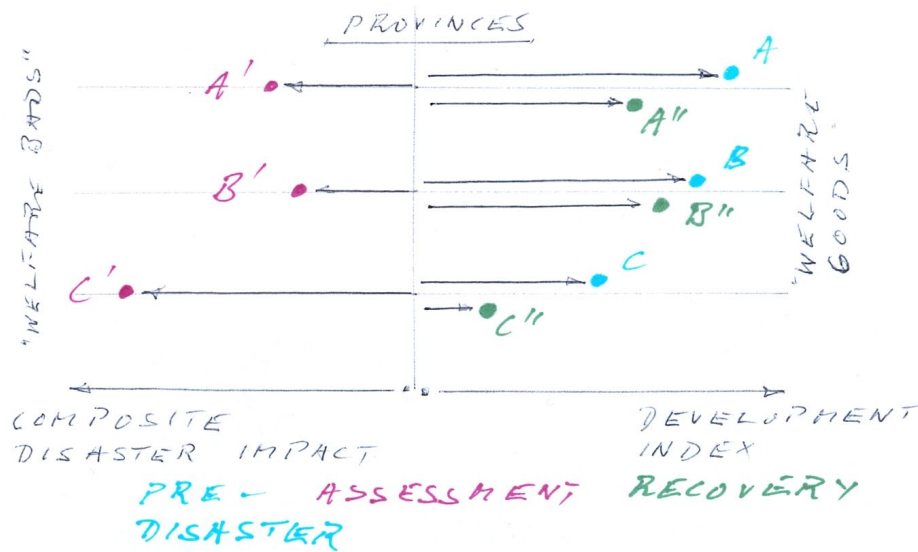 PROVINCES
"WELFARE BADS"
A' A
A"
B' B
B"
C' C
C"
"WELFARE
GOODS
COMPOSITE
DISASTER IMPACT
DEVELOPMENT
INDEX
PRE-
DISASTER
ASSESSMENT
RECOVERY